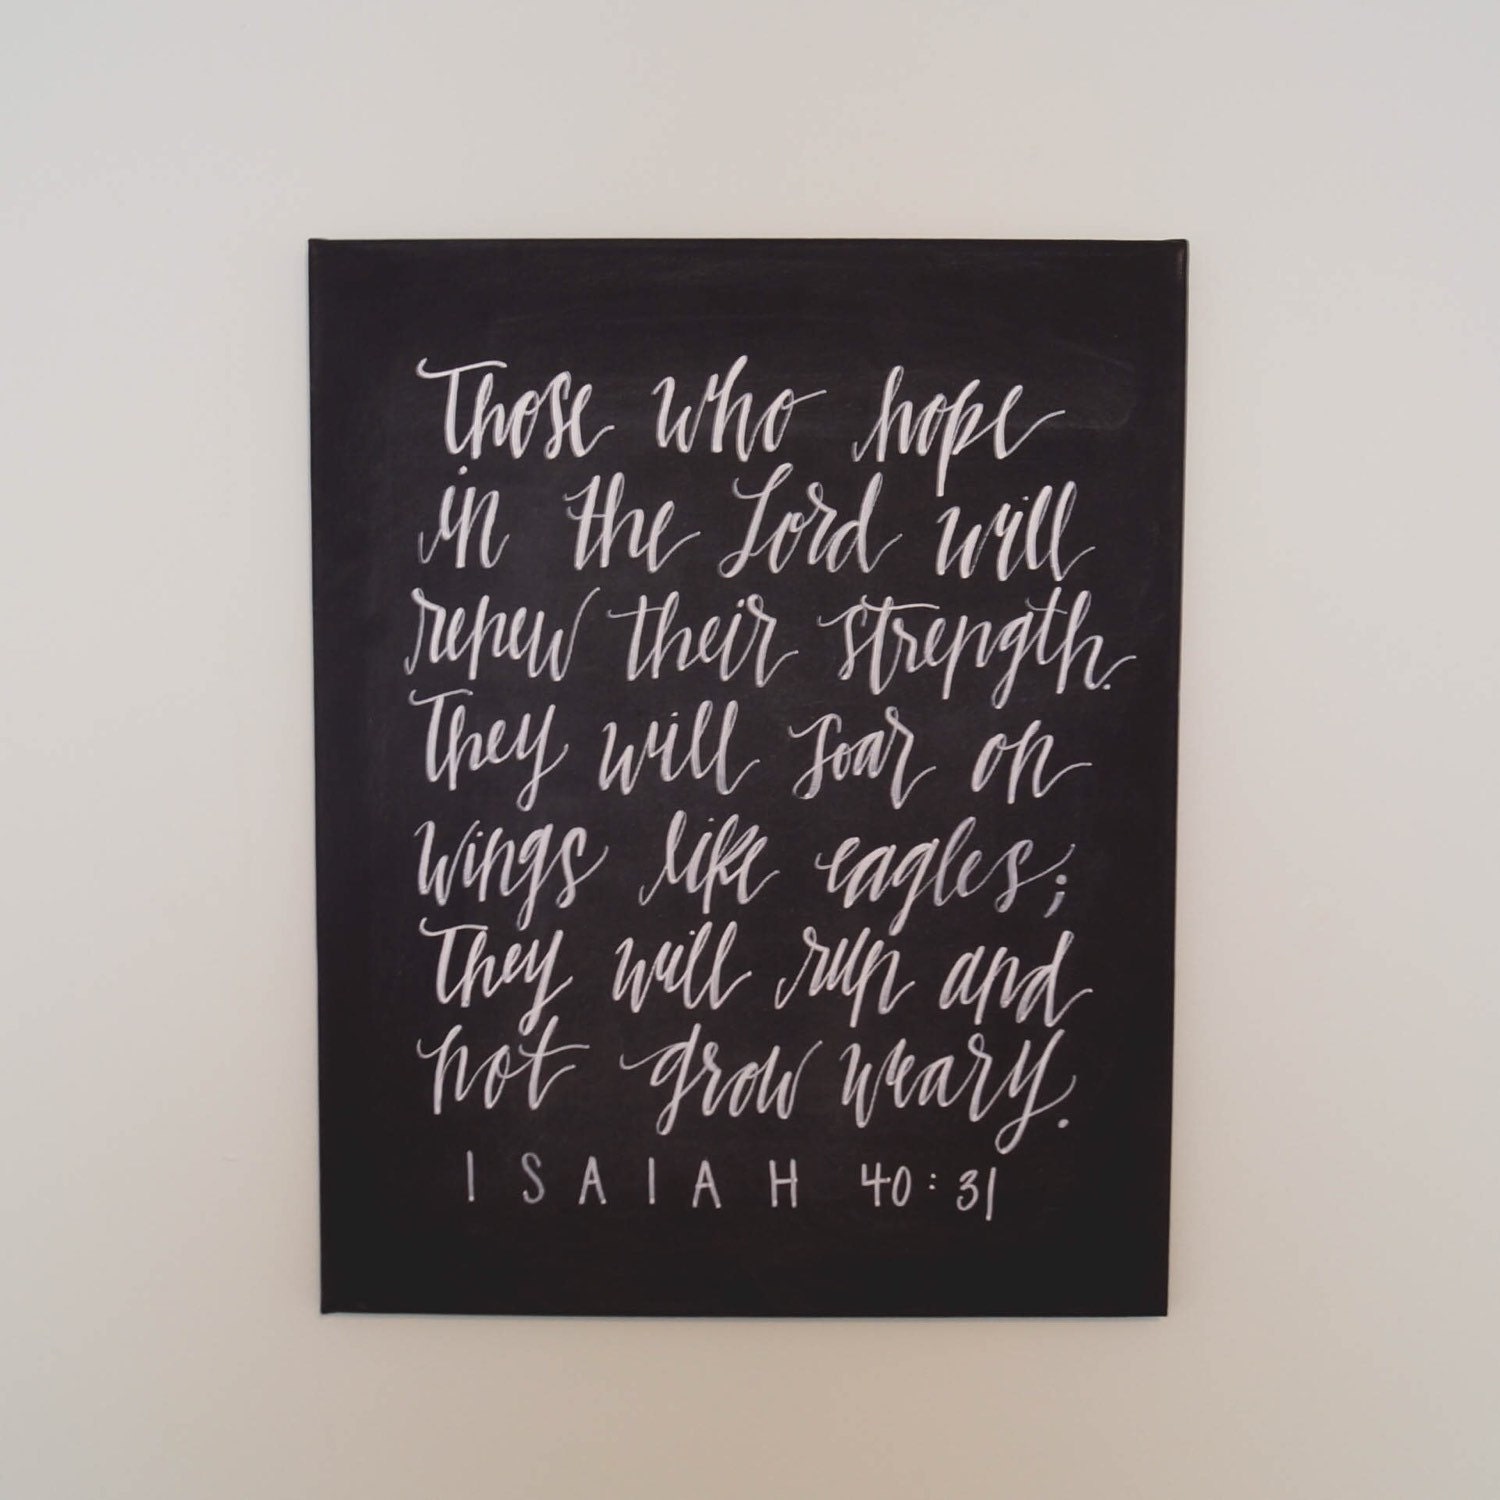 Those who hope
in the Lord will
renew their strength.
They will soar on
wings like eagles;
They will run and
not grow weary.
ISAIAH 40:31